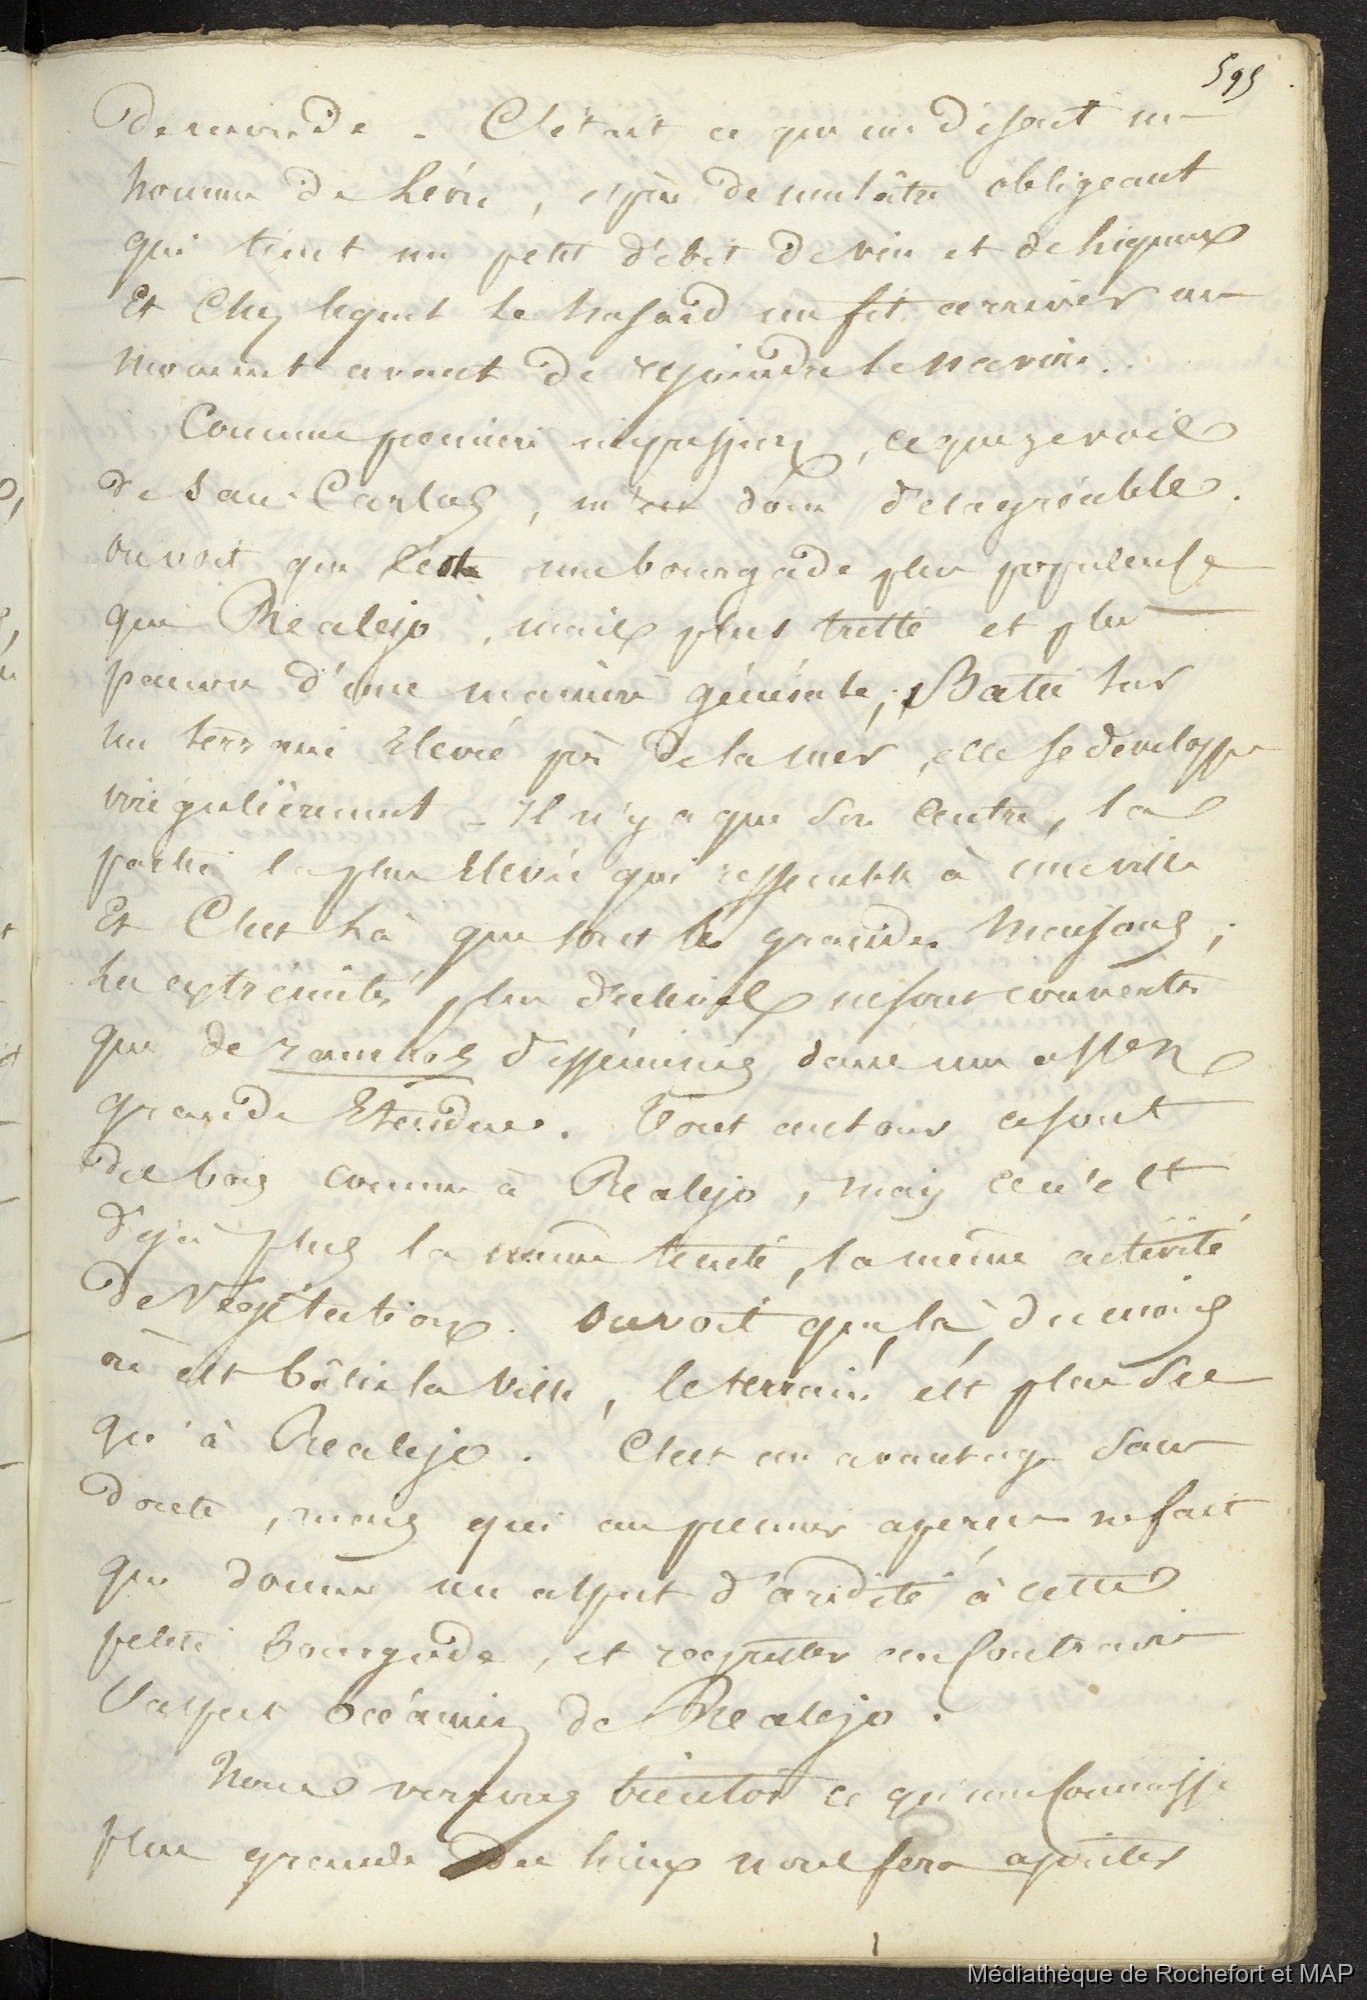 595
demande. C'était ce que me disait un
homme de Léon, espèce de mulâtre obligeant
qui tient un petit débit de vin et de liqueurs
Et chez lequel le hasard me fit arriver un
moment avant de rejoindre le navire.
Comme première impression, ce que je vois
de San-Carlos, m'est donc désagréable.
On voit que c'est une bourgade plus populeuse
que Realejo, mais plus triste et plus
pauvre d'une manière générale; Batie sur
un terrain Elevé près de la mer, elle se développe
irrégulièrement - Il n'y a que son centre, la
partie la plus Elevée qui ressemble à une ville
Et C'est là que sont les grandes maisons;
Les extrémités, plus ne sont couvertes
que de ranchos disséminés dans une assez
grande Etendue. Tout autour ce sont
des bois comme à Realejo, mais ce n'est
déjà plus la même teinte, la même activité
de végétation. On voit que, là, du moins
où est bâtie la Ville, le terrain est plus sec
qu'à Realejo. C'est un avantage sans
doute, mais qui au premier aperçu ne fait
que donner un aspect d'aridité à cette
petite bourgade, et regretter au contraire
l'aspect océanien de Realejo.
Nous verrons bientôt ce qu'une connaisse
plus grande des lieux nous fera ajouter
1
Médiathèque de Rochefort et MAP